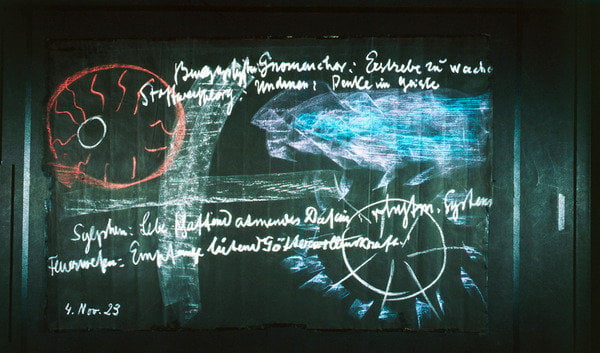 Gnomenchor: Erstrebe zu wache
Stoffwechselorg: Undinen: Denke im Geiste
Sylphen: Lebe schaffend atmendes Dasein rhythm. System
Feuerwesen: Empfange liebend Götterwillenskraft.
4. Nov. 23